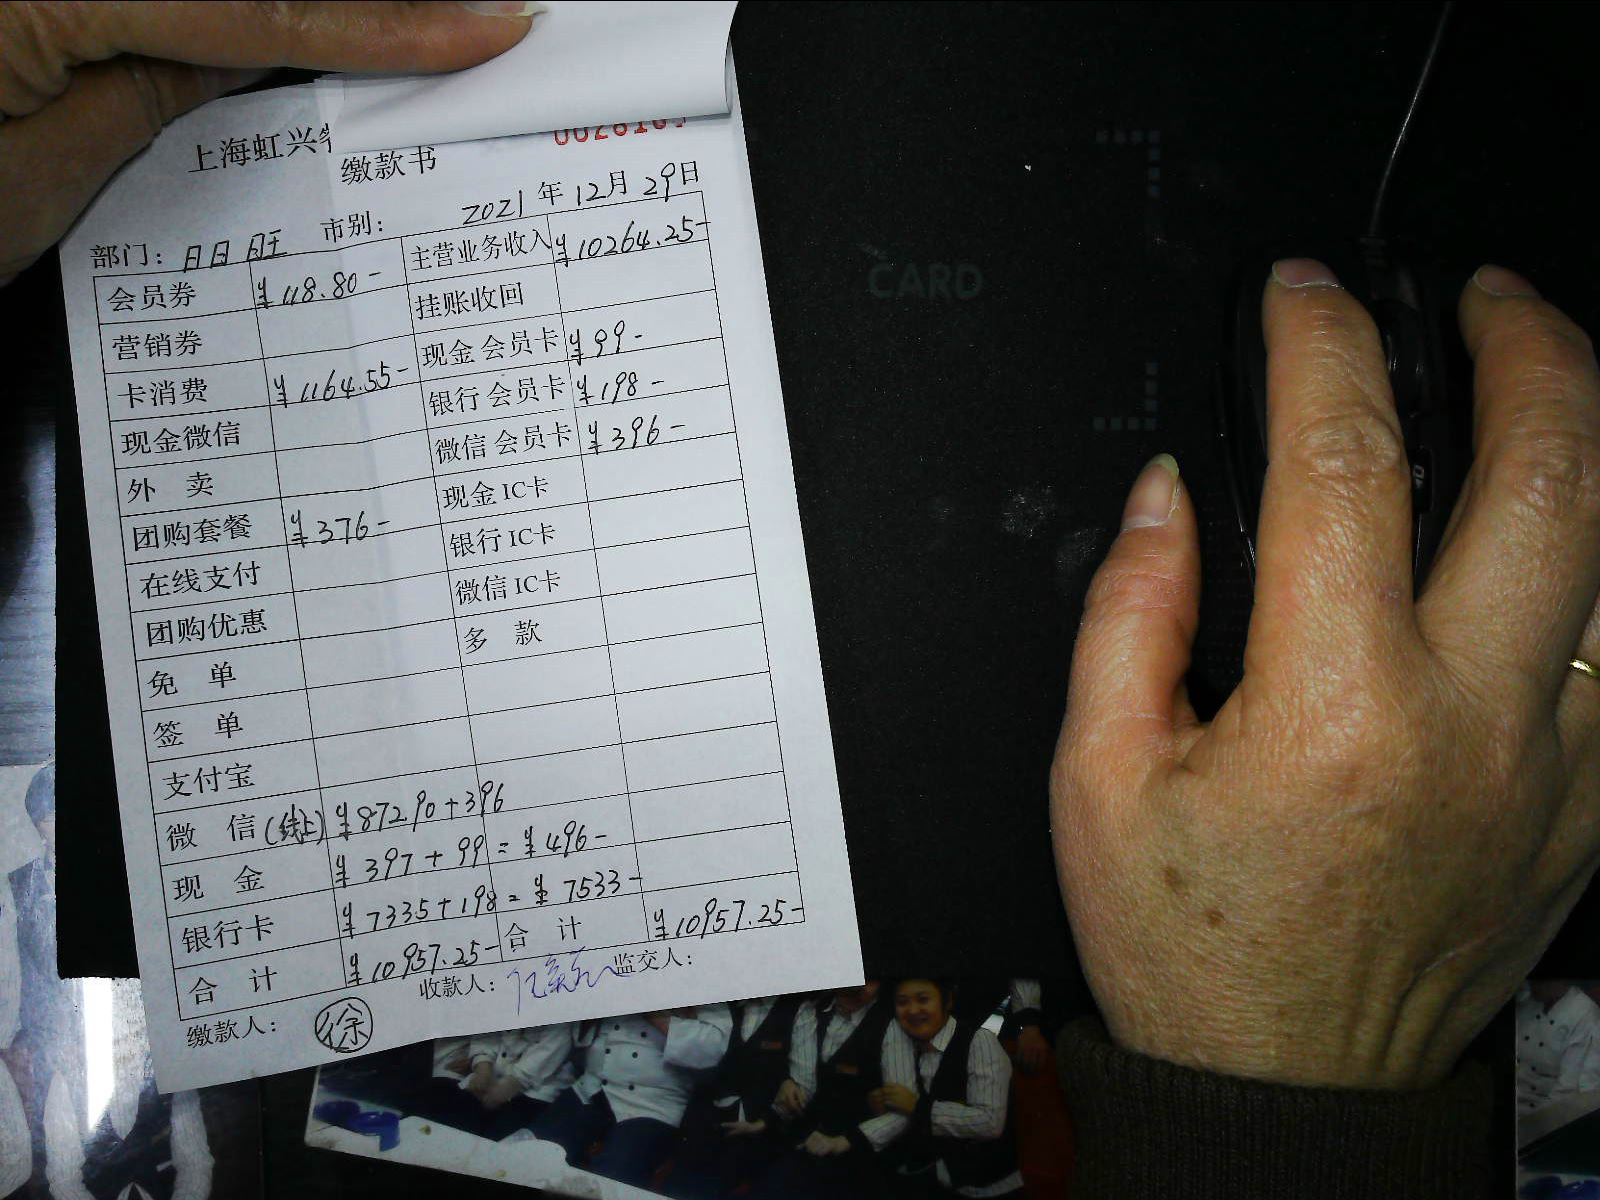 上海虹兴
缴款书
部门: 日日旺 市别: 2021年12月29日
会员券 ¥118.80- 主营业务收入 ¥10264.25-
营销券 挂账收回
卡消费 ¥1164.55- 现金会员卡 ¥99-
现金微信 银行会员卡 ¥198-
外 卖 微信会员卡 ¥396-
团购套餐 ¥376- 现金IC卡
在线支付 银行IC卡
团购优惠 微信IC卡
免 单 多 款
签 单
支付宝
微 信(线上) ¥872.90+396
现 金 ¥397+99=¥496-
银行卡 ¥7335+198=¥7533-
合 计 ¥10957.25- 合 计 ¥10957.25-
缴款人: 徐 收款人: 监交人:
CARD